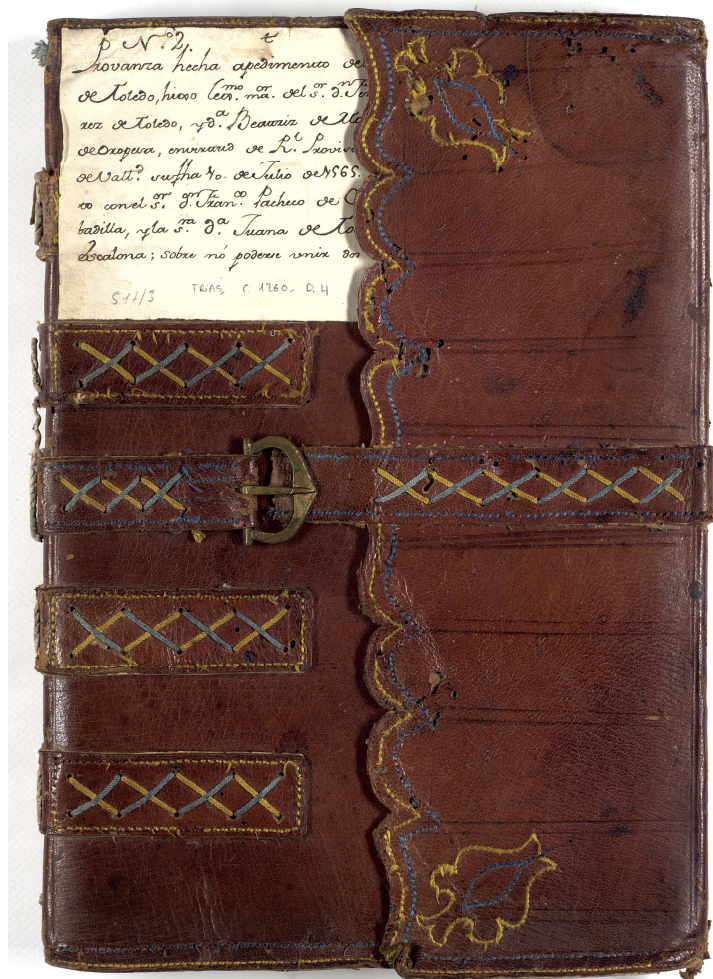 p N.º 2,, t
Provanza hecha apedimento del
de Toledo, hixo lexᵐᵒ. maᵒʳ. del sᵒʳ. dⁿ. Fer
rez de Toledo, y dᵃ. Beatriz de Mo
de Oropesa, envirtud de Rˡ. Provis
de Vallᵈ. su fha 40. de Julio de 1565.
to con el sᵒʳ. dⁿ. Franᶜᵒ. Pacheco de C
badilla, y la sʳᵃ. dᵃ. Juana de To
Escalona; sobre nó poderse unir dos
517/3 FRIAS, C. 1260, D. 4